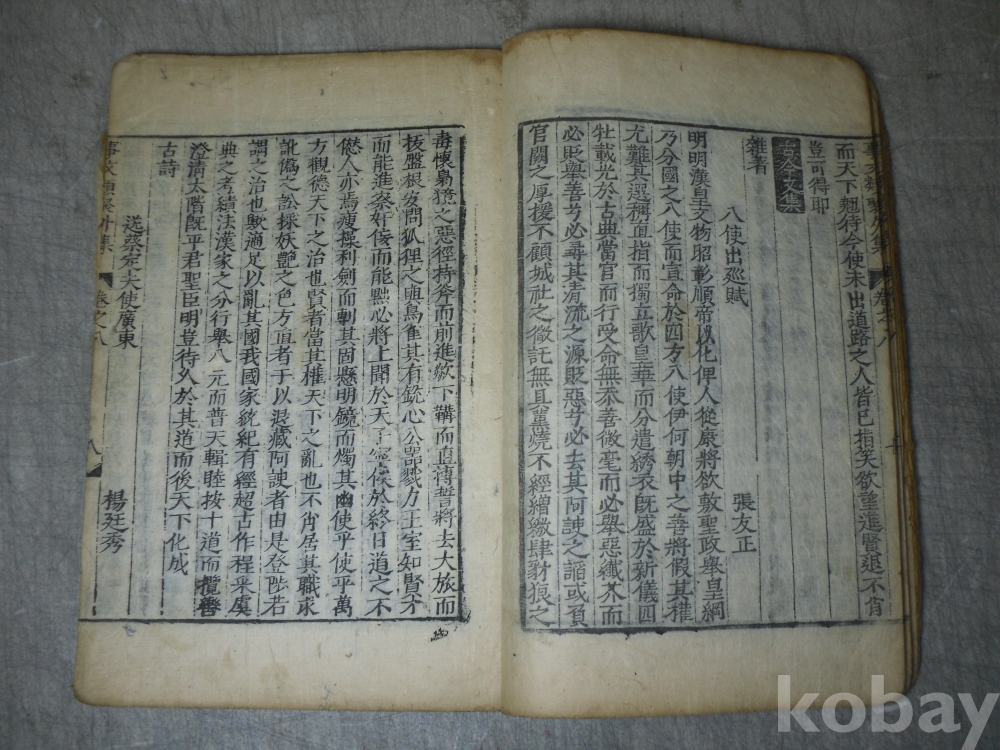 而天下翹待今使未出道路之人皆已指笑欲望進賢退不肖
豈可得耶
古今文集
雜著
八使出廵賦 張友正
明明漢皇文物昭彰順帝以化俾人從康將欲敷聖政舉皇綱
乃分國之八使而宣命於四方八使伊何朝中之善將假其權
尤難其選稱直指而獨立歌皇華而分遣綉衣旣盛於新儀四
牡載光於古典當官而行受命無忝善微毫而必舉惡纎介而
必貶舉善者必尋其清流之源貶惡者必去其阿諛之謟或負
官闕之厚援不顧城社之微託無且熏燒不經繒繳肆豺狼之
毒懷梟獍之惡徑持斧而前進欻下鞲而直摶誓將去大旅而
抜盤根笅問狐狸之與鳥雀其有銳心公噐戮力王室如賢才
而能進察奸侫而能黜必將上聞於天子寧俟於終日道之不
僣人亦焉瘦操利劍而剸其固懸明鏡而燭其幽使乎使乎萬
方觀德天下之治也賢者當其權天下之亂也不肖居其職求
訛僞之訟採妖艷之色方直者于以退藏阿諛者由是登陟若
謂之治也歟適足以亂其國我國家統紀有經超古作程采虞
典之考績法漢家之分行舉八元而普天輯睦按十道而攬轡
澄清太階旣平君聖臣明豈待久於其道而後天下化成
古詩
送蔡定夫使廣東 楊廷秀
事文類聚外集 卷之八 八
kobay